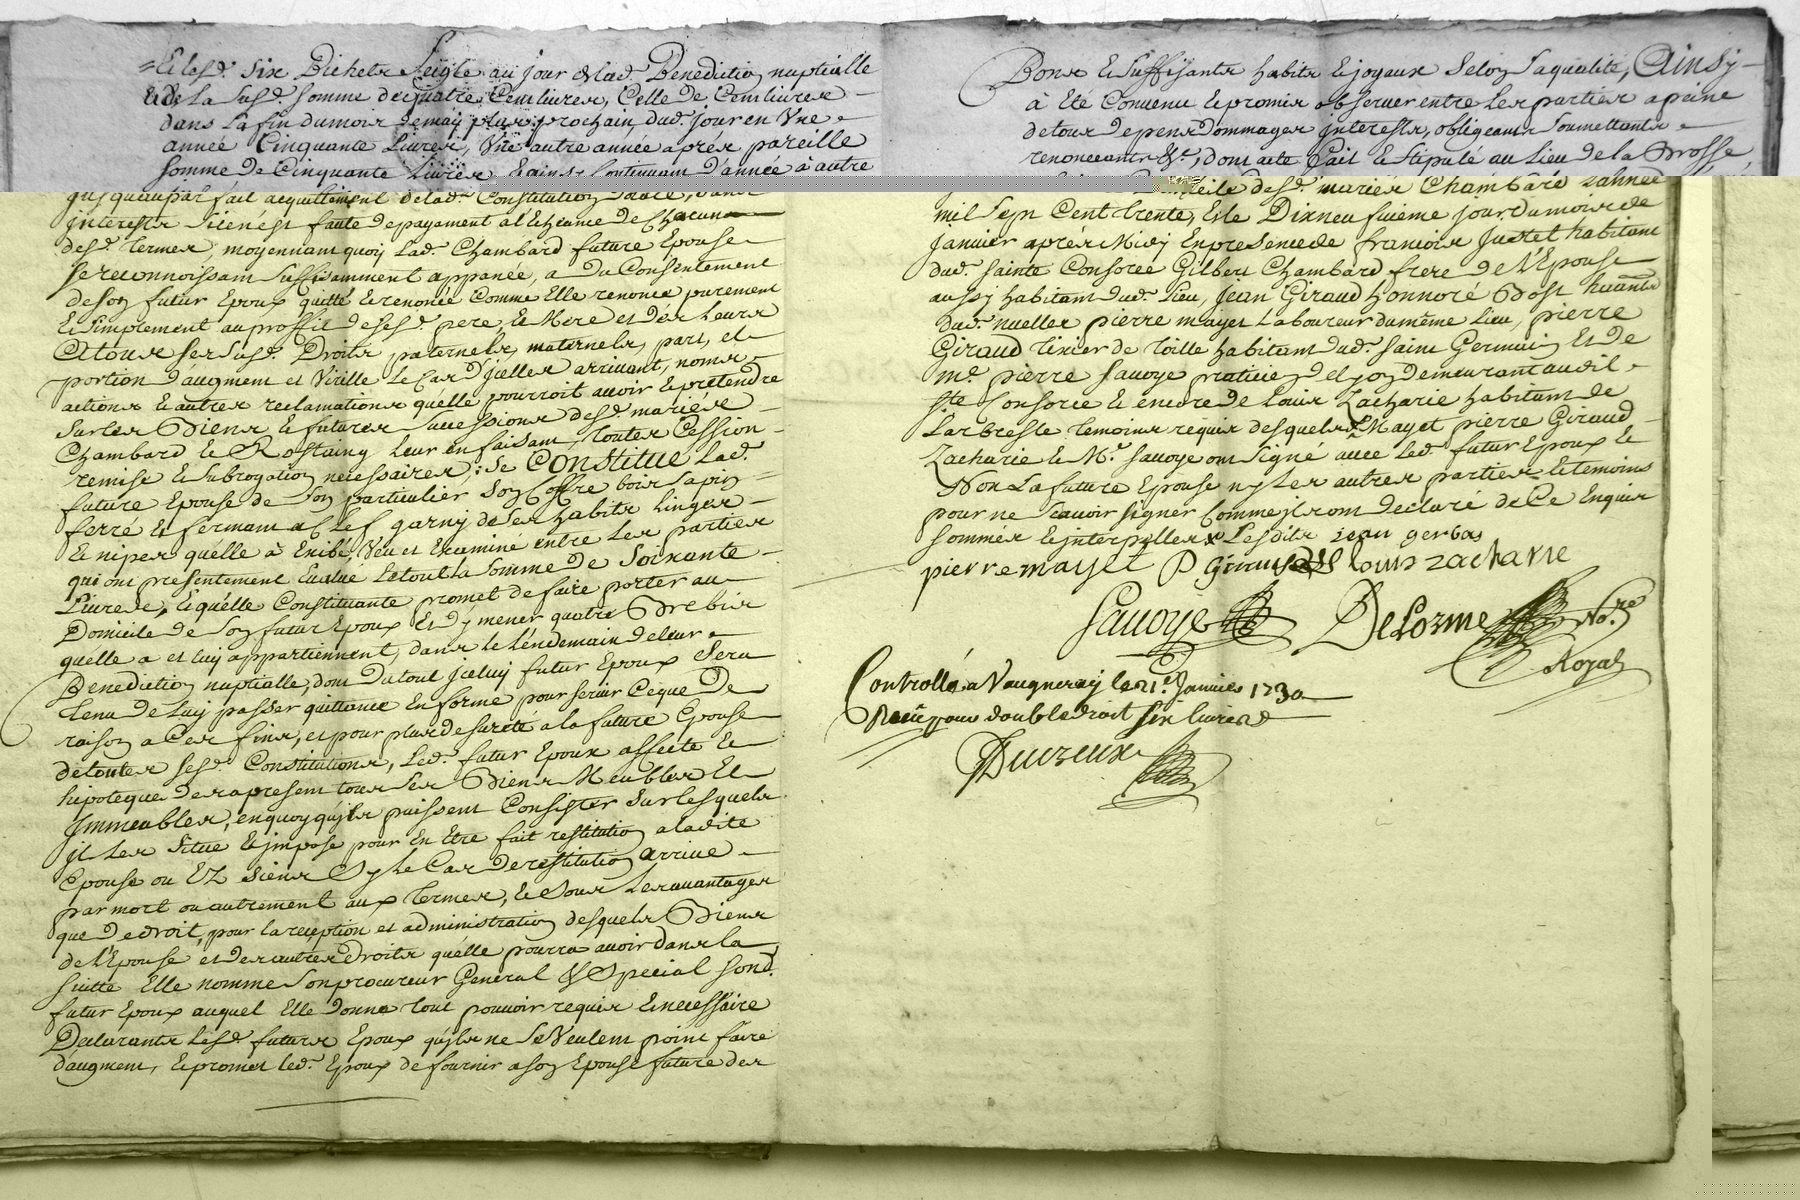 Et lesd. six Bichets seigle au jour de lad. Benediction nuptialle
Et de la susd. somme de quatre Cent livres, Celle de Cent livres
dans la fin du mois de may plus prochain, dud. jour en Une
année Cinquante Livres, Une autre année aprés pareille
somme de Cinquante Livres Et ainsy Continuant d'année à autre
jusqu'au parfait acquittement de lad. Constitution
interests s'il n'est faute de payement a l'Echeance de Chacun
desd. termes, moyennant quoy Lad. Chambard future Epouse
se reconnoissant suffisamment appanée, a du Consentement
de son futur Epoux quitté Et renoncé Comme Elle renonce purement
Et simplement au proffit de sesd. pere, Et Mere et des Leurs
A tous ses susd. Droits paternels, maternels, part, et
portion d'augment et Virille Le Cas d'jcelles arrivant, noms
actions Et autres reclamations quelle pourroit avoir Et pretendre
sur les Biens Et futures successions desd. mariés
Chambard Et Rostaing Leur en faisant, toutes Cession
remise Et subrogation necessaires; se Constitue Lad.
future Epouse de son particulier son Coffre bois sapin
ferré Et fermant a Clef garny de ses habits Linges
Et nipes qu'elle à Exibé, Veu et Examiné entre les parties
qui ont presentement Evalué Le tout La somme de Soixante
Livres, Et qu'elle Constituante promet de faire porter au
Domicile de son futur Epoux Et d'y mener quatre Brebis
qu'elle a et luy appartiennent, dans le lendemain de leur
Benediction nuptialle, dont du tout jceluy futur Epoux sera
tenu de Luy passer quittance En forme pour servir Ce que De
raison a Ces fins, et pour plus de sureté a la future Epouse
de toutes sesd. Constitutions, Led. futur Epoux affecte Et
hipoteque des a present tous ses Biens Meubles Et
Jmmeubles, en quoy qu'jls puissent Consister sur lesquels
jl Les situe Et jmpose pour En Etre fait restitution a ladite
Epouse ou Ez siens sy le Cas de restitution arrive
par mort ou autrement aux termes, Et sous Les avantages
que De droit, pour la reception et administration desquels Biens
de l'Epouse et des autres Droits qu'elle pourra avoir dans la
suitte Elle nomme son procureur General & special sond.
futur Epoux auquel Elle donne tout pouvoir requis Et necessaire
Declarants Lesd. futurs Epoux qu'jls ne se Veulent point faire
d'augment, Et promet led. Epoux de fournir a son Epouse future des
Bons Et suffisants habits Et joyaux selon sa qualité, Ainsy
à Eté Convenu Et promis observer entre Les parties a peine
de tous depens dommages interests, obligeants soumettants
renonceants &c., dont acte fait Et stipulé au Lieu de la Brosse
desd. mariés Chambard L'année
mil sept Cent trente, Et le Dixneufuieme jour du mois de
janvier aprés Midy En presence de francois Justet habitant
dud. sainte Consorce Gilbert Chambard frere de l'Epouse
aussy habitant dud. Lieu, Jean Giraud honnoré Bost
dud. nuelles pierre mayet Laboureur du même Lieu, pierre
Giraud tixier de toille habitant dud. saint Germain Et de
me. pierre savoye praticien de Lyon demeurant audit
ste Consorce Et encore de Louis Zacharie habitant de
Larbresle temoins requis desquels Mayet pierre Giraud
Zacharie Et Mr. savoye ont signé avec Led. futur Epoux Et
Non La future Epouse ny Les autres parties Et temoins
pour ne sçavoir signer Comme jls ont declaré de Ce Enquis
sommés Et interpellés Lesdits jean gerbas
pierre mayet P Giraud louis zacharie
Savoye DeLorme No.re
Royal
Controllé a Vaugneray le 21e Janvier 1730
Reçu pour double droit six livres
Ducreux